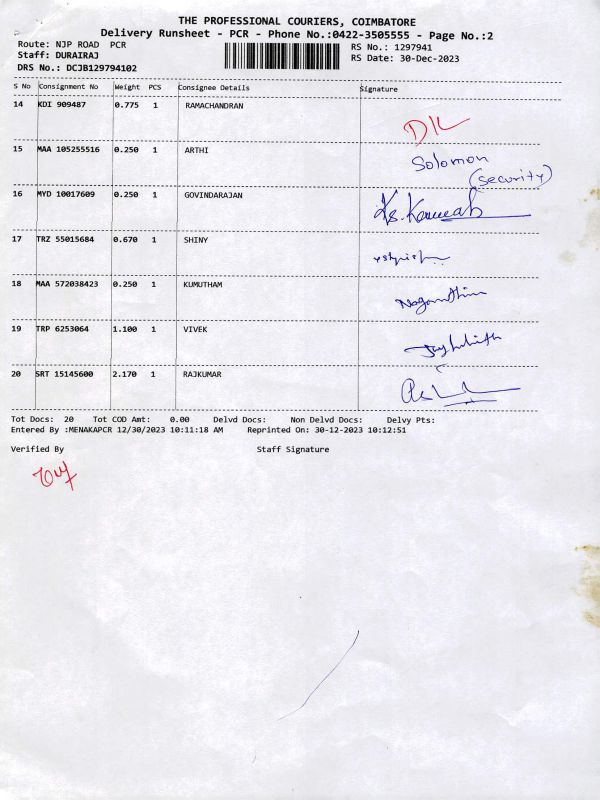 THE PROFESSIONAL COURIERS, COIMBATORE
Delivery Runsheet - PCR - Phone No.:0422-3505555 - Page No.:2
Route: NJP ROAD PCR
RS No.: 1297941
Staff: DURAIRAJ
RS Date: 30-Dec-2023
DRS No.: DCJB129794102
S No Consignment No Weight PCS Consignee Details Signature
14 KDI 909487 0.775 1 RAMACHANDRAN
15 MAA 105255516 0.250 1 ARTHI Solomon
(security)
16 MYD 10017609 0.250 1 GOVINDARAJAN
17 TRZ 55015684 0.670 1 SHINY
18 MAA 572038423 0.250 1 KUMUTHAM
19 TRP 6253064 1.100 1 VIVEK
20 SRT 15145600 2.170 1 RAJKUMAR
Tot Docs: 20 Tot COD Amt: 0.00 Delvd Docs: Non Delvd Docs: Delvy Pts:
Entered By :MENAKAPCR 12/30/2023 10:11:18 AM Reprinted On: 30-12-2023 10:12:51
Verified By Staff Signature